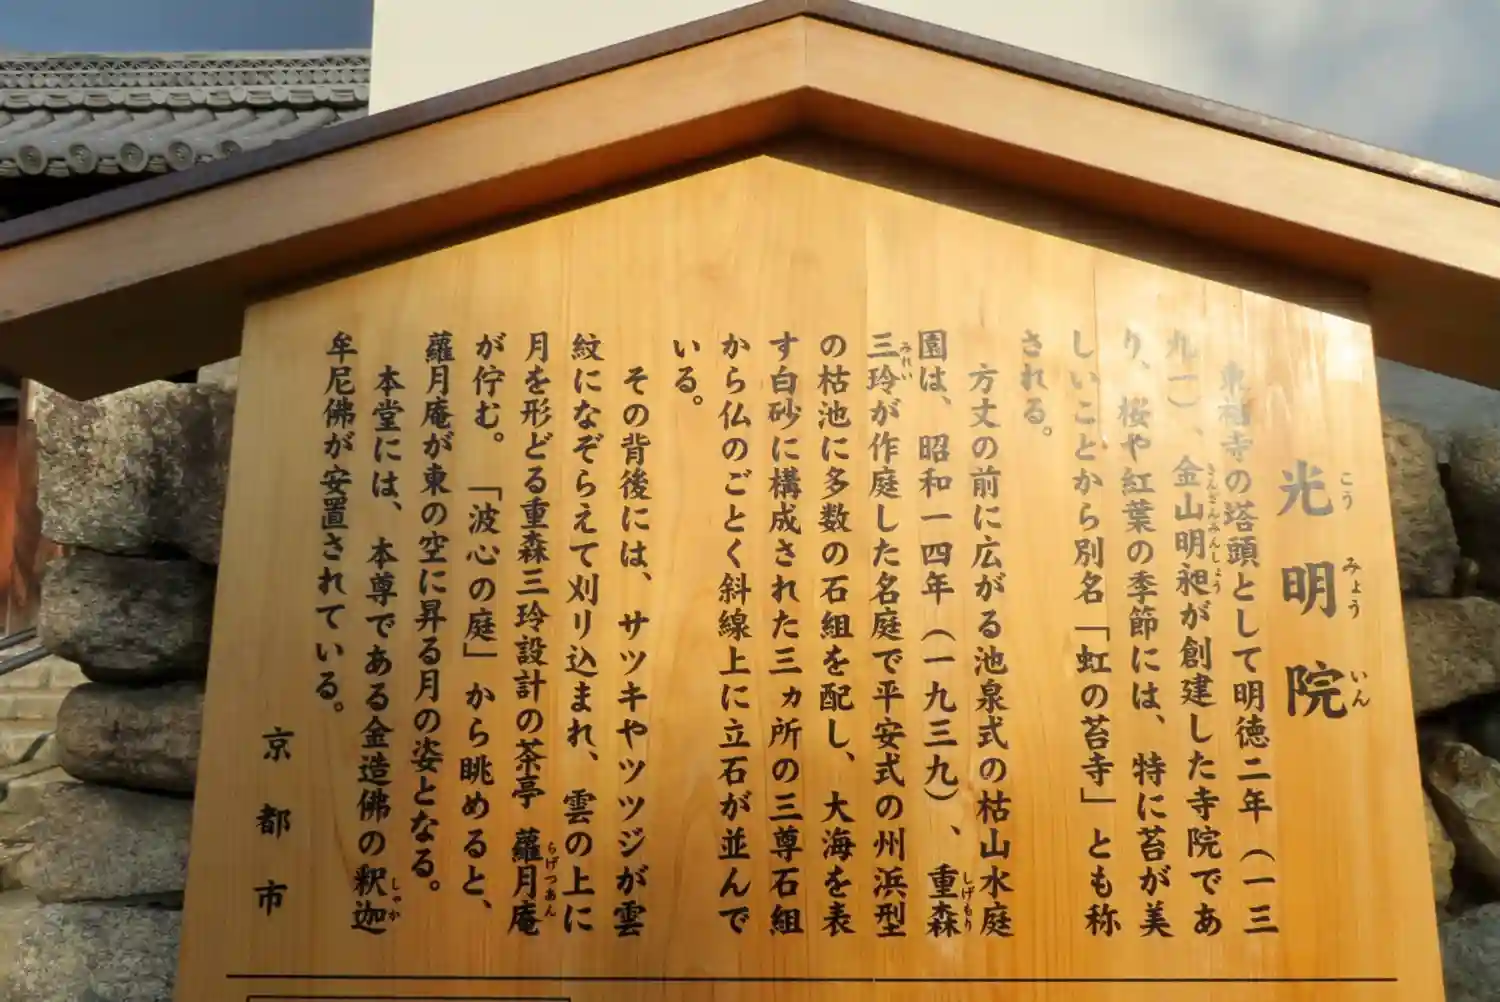 光明院
こうみょういん
東福寺の塔頭として明徳二年（一三
九一）、金山明昶が創建した寺院であ
きんざんみんしょう
り、桜や紅葉の季節には、特に苔が美
しいことから別名「虹の苔寺」とも称
される。
方丈の前に広がる池泉式の枯山水庭
園は、昭和一四年（一九三九）、重森
しげもり
三玲が作庭した名庭で平安式の州浜型
みれい
の枯池に多数の石組を配し、大海を表
す白砂に構成された三ヵ所の三尊石組
から仏のごとく斜線上に立石が並んで
いる。
その背後には、サツキやツツジが雲
紋になぞらえて刈り込まれ、雲の上に
月を形どる重森三玲設計の茶亭 蘿月庵
らげつあん
が佇む。「波心の庭」から眺めると、
蘿月庵が東の空に昇る月の姿となる。
本堂には、本尊である金造佛の釈迦
しゃか
牟尼佛が安置されている。
京都市